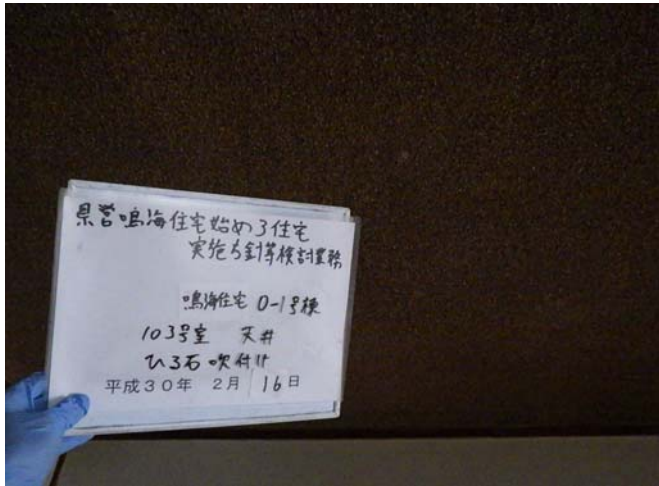 県営鳴海住宅始め3住宅
実施方針等検討業務
鳴海住宅 O-1号棟
103号室 天井
ひる石吹付け
平成30年 2月 16日